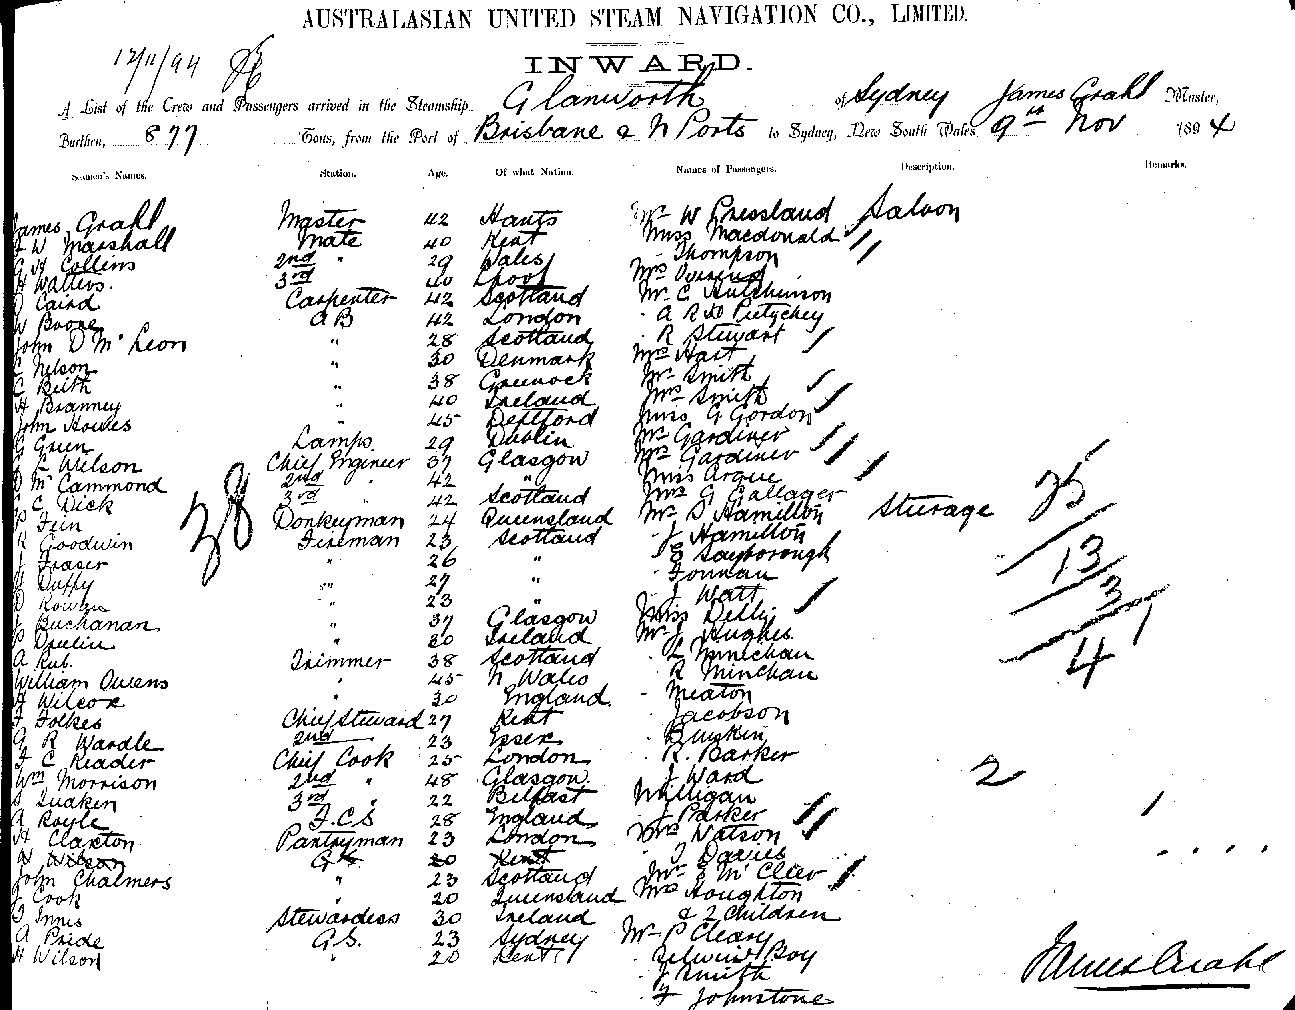 AUSTRALASIAN UNITED STEAM NAVIGATION CO., LIMITED.
12/11/94
INWARD.
A List of the Crew and Passengers arrived in the Steamship Glanworth of Sydney James Grahl Master,
Burthen, 877 Tons, from the Port of Brisbane & N Ports to Sydney, New South Wales, 9th Nov 1894
Seamen's Names. Station. Age. Of what Nation. Names of Passengers. Description. Remarks.
James Grahl Master 42 Hants Mr W Pressland Saloon
W Marshall Mate 40 Kent Miss Macdonald
G H Collins 2nd " 29 Wales Thompson
H Walters. 3rd 40 Lpool Mrs
D Caird Carpenter 42 Scotland Mr C Hutchinson
W Boone AB 42 London A R
John D McLeon " 28 Scotland R Stewart
C Nelson " 30 Denmark Mrs Hart
C Beith " 38 Greenock Mr Smith
H Branney " 40 Ireland Mrs Smith
John Howes " 45 Deptford Miss G Gordon
G Green Lamps 29 Dublin Mr Gardiner
Wilson Chief Engineer 37 Glasgow Mrs Gardiner
D McCammond 2nd " 42 " Miss Argue
C Dick 3rd " 42 Scotland Mrs G Gallager
P Fein Donkeyman 24 Queensland Mr D Hamilton Sturage 25
R Goodwin 38 Fireman 23 Scotland J Hamilton
J Fraser " 26 " 13
Duffy " 27 " Fonnan
D Rowan " 23 " J Watt 3
J Buchanan " 37 Glasgow Miss
P Devlin " 30 Ireland Mr J Hughes 1
A Rub. Trimmer 38 Scotland L Minechan 4
William Owens " 45 N Wales R Minchan
H Wilcox " 30 England Meaton
F Folkes Chief Steward 27 Kent Jacobson
G R Wardle 2nd 23 Essex Buskin
F C Reader Chief Cook 25 London R. Barker
Wm Morrison 2nd " 48 Glasgow J Ward 2
S Quaken 3rd " 22 Belfast Milligan
A Royle F.C.S 28 England J Parker
H Claxton Pantryman 23 London Mrs Watson
W Wilson G.S. 20 Kent J Davies
John Chalmers " 23 Scotland Mr E McCleer
J Cook " 20 Queensland Mrs Houghton
J Innis Stewardess 30 Ireland & 2 Children
A Pride G.S. 23 Sydney Mr P Cleary
H Wilson " 20 Kent Boy
J Smith
F Johnstone
James Grahl